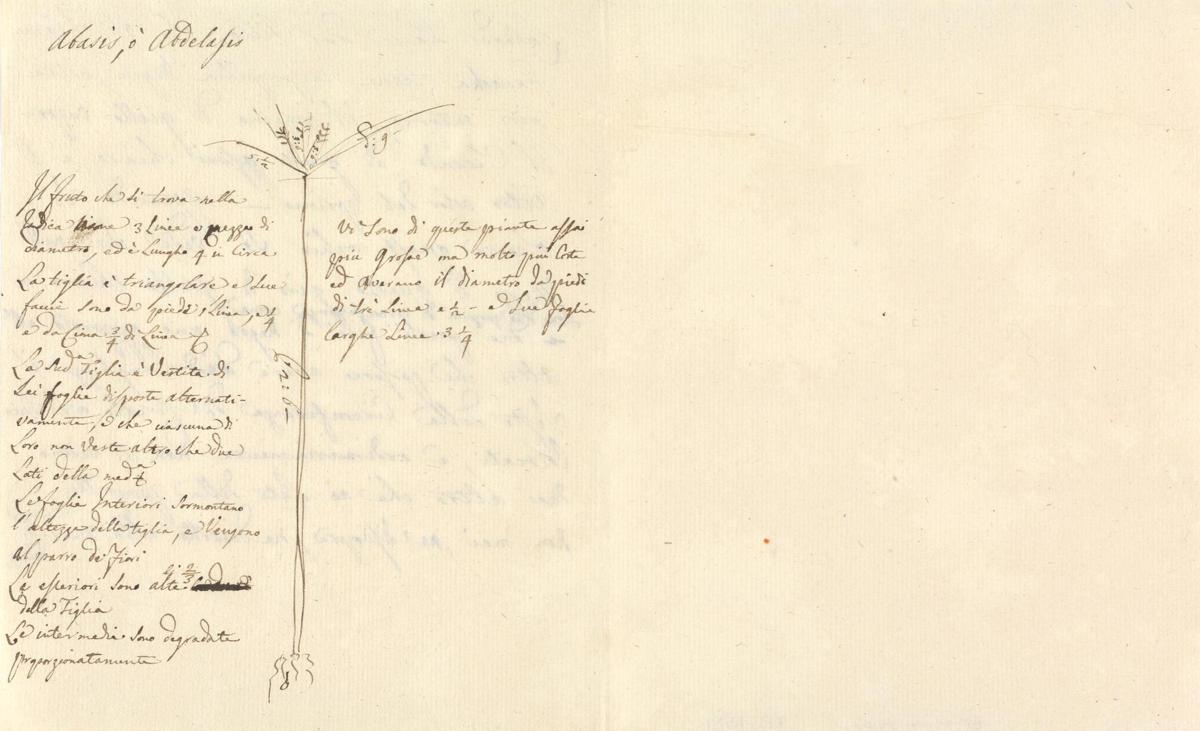 Abasis, ò Abdelasis
Il fruto che si trova nella
Radica 3 Linee e mezzo di
diametro, ed è Lungho 4 in Circa
La tiglia è triangolare e Sue
facie sono da piedi 1 Linea, e 1/4
e da Cima 3/4 di Linea
La Sud.a Tiglia è Vestita di
Sei foglie disposte alternati-
vamente, e che ciascuna di
Loro non Veste altro che due
Lati della med.a
Le foglie Interiori Sormontano
l'altezza della tiglia, e Vengono
al parro de Fiori
Le esteriori Sono alte li 2/3
della Tiglia
Le intermedie sono degradate
proporzionatamente
Vi Sono di queste piante assai
piu Grosse ma molto piu Corte
ed averano il diametro da piedi
di trè Linee e 1/2 - e Sue foglie
larghe Linee 3 1/4